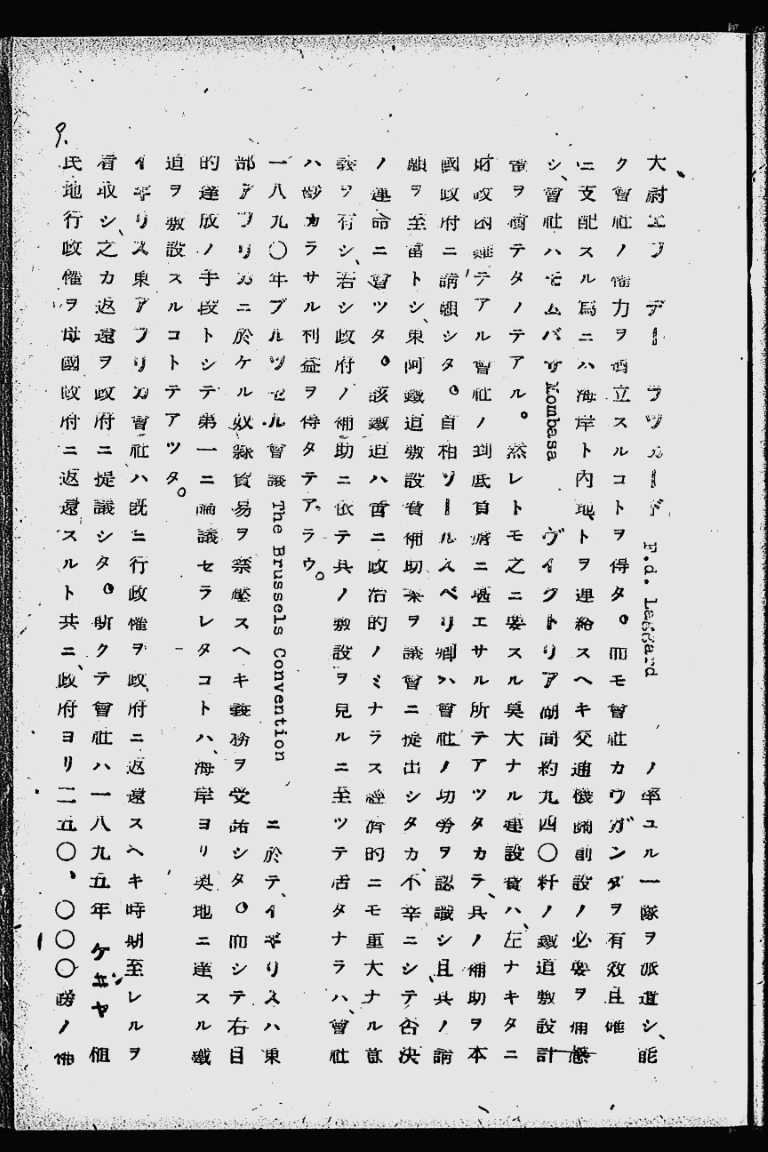 大尉エフ デー ラツガード F.d. Laggard ノ率ユル一隊ヲ派遣シ、能
ク會社ノ權力ヲ樹立スルコトヲ得タ。而モ會社カウガンダヲ有效且確
ニ支配スル爲ニハ海岸ト内地トヲ連絡スヘキ交通機關創設ノ必要ヲ痛感
シ、會社ハモムバサ Kombasa ヴイクトリア湖間約九四〇粁ノ鐵道敷設計
畫ヲ樹テタノテアル。然レトモ之ニ要スル莫大ナル建設費ハ、左ナキタニ
財政困難テアル會社ノ到底負擔ニ堪エサル所テアツタカラ、其ノ補助ヲ本
國政府ニ請願シタ。首相ソールスベリ卿ハ會社ノ功勞ヲ認識シ、且其ノ請
願ヲ至當トシ、東阿鐵道敷設費補助案ヲ議會ニ提出シタカ、不幸ニシテ否決
ノ運命ニ會ツタ。該鐵道ハ啻ニ政治的ノミナラス經濟的ニモ重大ナル意
義ヲ有シ、若シ政府ノ補助ニ依テ其ノ敷設ヲ見ルニ至ツテ居タナラハ、會社
ハ尠カラサル利益ヲ得タテアラウ。
一八九〇年ブルツセル會議 The Brussels Convention ニ於テ、イギリスハ東
部アフリカニ於ケル奴隷貿易ヲ禁壓スヘキ義務ヲ受諾シタ。而シテ右目
的達成ノ手段トシテ第一ニ論議セラレタコトハ、海岸ヨリ奥地ニ達スル鐵
道ヲ敷設スルコトテアツタ。
イギリス東アフリカ會社ハ既ニ行政權ヲ政府ニ返還スヘキ時期至レルヲ
看取シ、之カ返還ヲ政府ニ提議シタ。斯クテ會社ハ一八九五年ケニヤ租
民地行政權ヲ母國政府ニ返還スルト共ニ、政府ヨリ二五〇、〇〇〇磅ノ補
9.